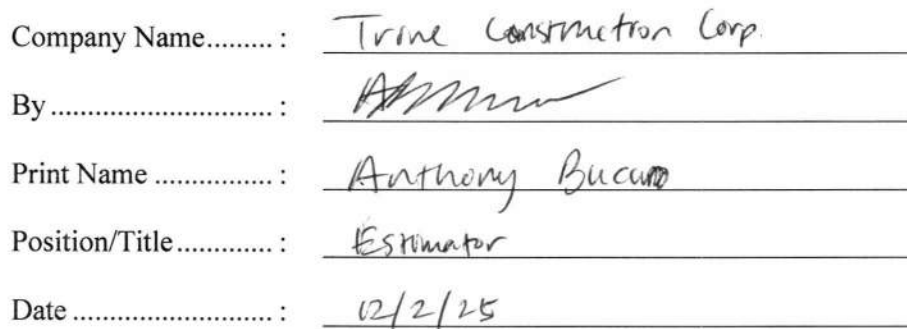 Company Name......... : Trine Construction Corp.
By ............................ :
Print Name ............... : Anthony
Position/Title............. : Estimator
Date .......................... : 12/2/25